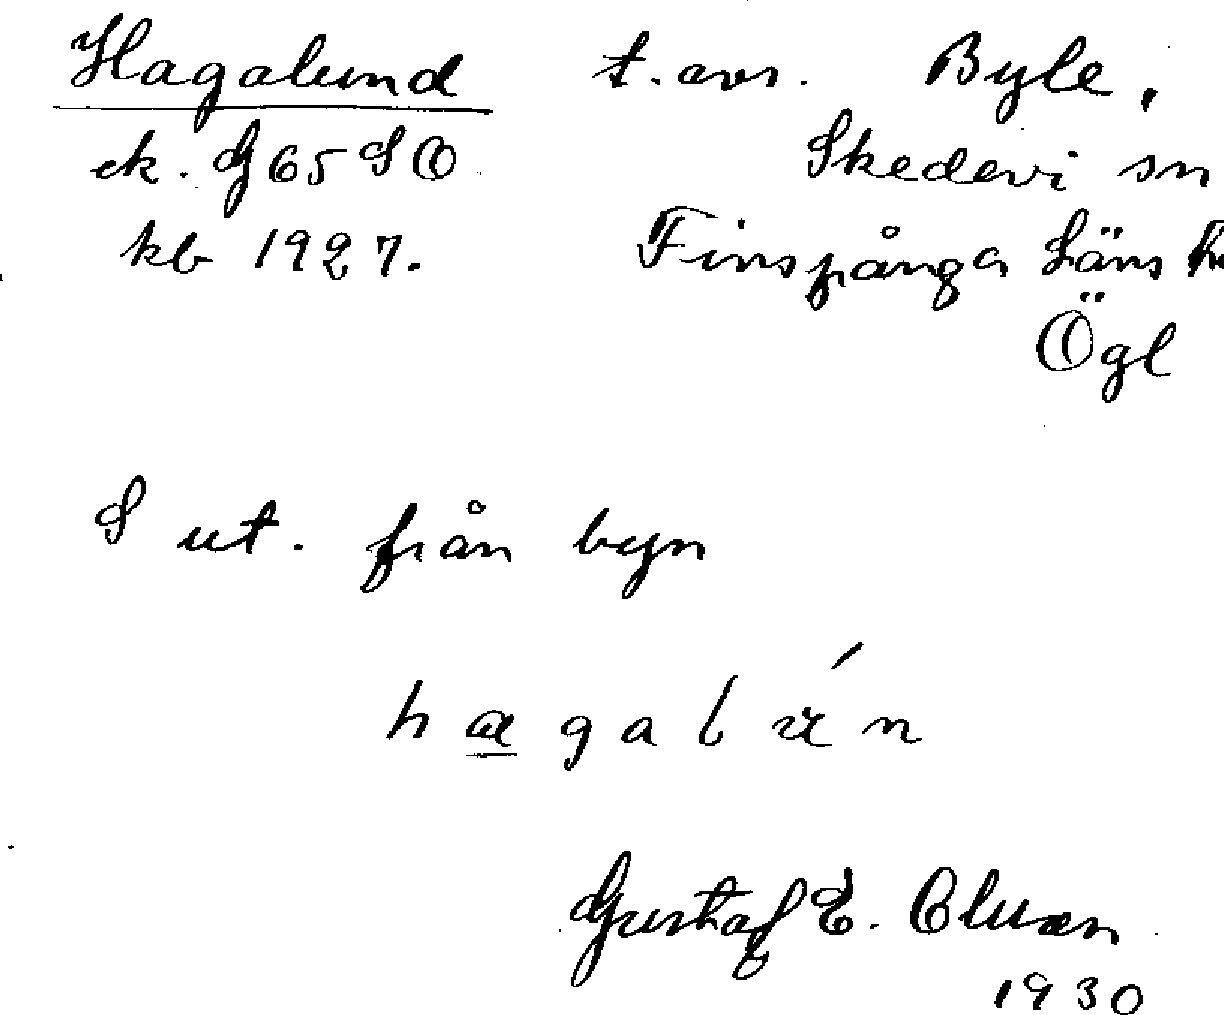 Hagalund t. avs. Byle,
ek. G 65 S O Skedevi sn
kb 1927. Finspånga Läns
Ögl
S ut. från byn
hagalún
Gustaf E.
1930